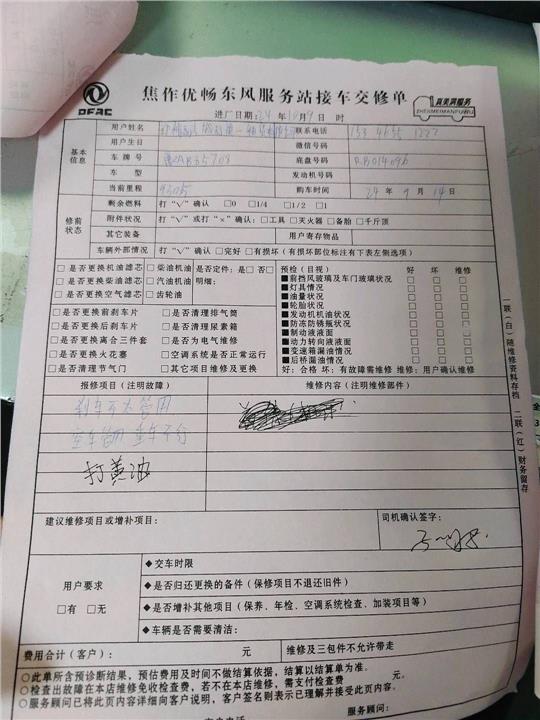 DFAC
焦作优畅东风服务站接车交修单
真美满服务
ZHENMEIMANFUWU
进厂日期:24年10月9日 时
基本信息
用户姓名
联系电话 153 4655 1222
用户生日
微信号码
车牌号
底盘号码 RB014096
车型
发动机号码
当前里程 9305
购车时间 24年9月14日
修前状态
剩余燃料 打“√”确认 □0 □1/4 □1/2 □1
附件状况 打“√”或打“×”确认:□工具 □灭火器 □备胎 □千斤顶
其它装备
用户寄存物品
车辆外部情况 打“√”确认 □完好 □有损坏(有损坏部位标注有下表左侧选项)
□是否更换机油滤芯 □柴油机油 是否定件:是□否□
□是否更换柴油滤芯 □汽油机油 明细:
□是否更换空气滤芯 □齿轮油
□是否更换前刹车片 □是否清理排气筒
□是否更换后刹车片 □是否清理尿素箱
□是否更换离合三件套 □是否为电气维修
□是否更换火花塞 □空调系统是否正常运行
□是否清理节气门 □其它项目维修及更换
预检(目视) 好 坏 维修
■前挡风玻璃及车门玻璃状况 □ □ □
■灯具情况 □ □ □
■油量状况 □ □ □
■轮胎状况 □ □ □
■发动机机油状况 □ □ □
■防冻防锈瓶状况 □ □ □
■制动液液面 □ □ □
■动力转向液液面 □ □ □
■变速箱漏油情况 □ □ □
■后桥漏油情况 □ □ □
好:合格 坏:有故障需维修 维修:用户确认维修
报修项目(注明故障)
维修内容(注明维修部件)
刹车不太管用
空车管用 重车不行
打黄油
建议维修项目或增补项目:
司机确认签字:
用户要求
□有 □无
◆交车时限
◆是否归还更换的备件(保修项目不退还旧件)
◆是否增补其他项目(保养、年检、空调系统检查、加装项目等)
◆车辆是否需要清洁:
费用合计(客户): 元
维修及三包件不允许带走
○此单所含预诊断结果,预估费用及时间不做结算依据,结算以结算单为准。
○检查出故障在本店维修免收检查费,若不在本店维修,需支付检查费 元。
○服务顾问已将此页内容详细向客户说明,客户签名则表示已理解并接受此页内容。
服务顾问:
一联(白)随维修资料存档 二联(红)财务留存